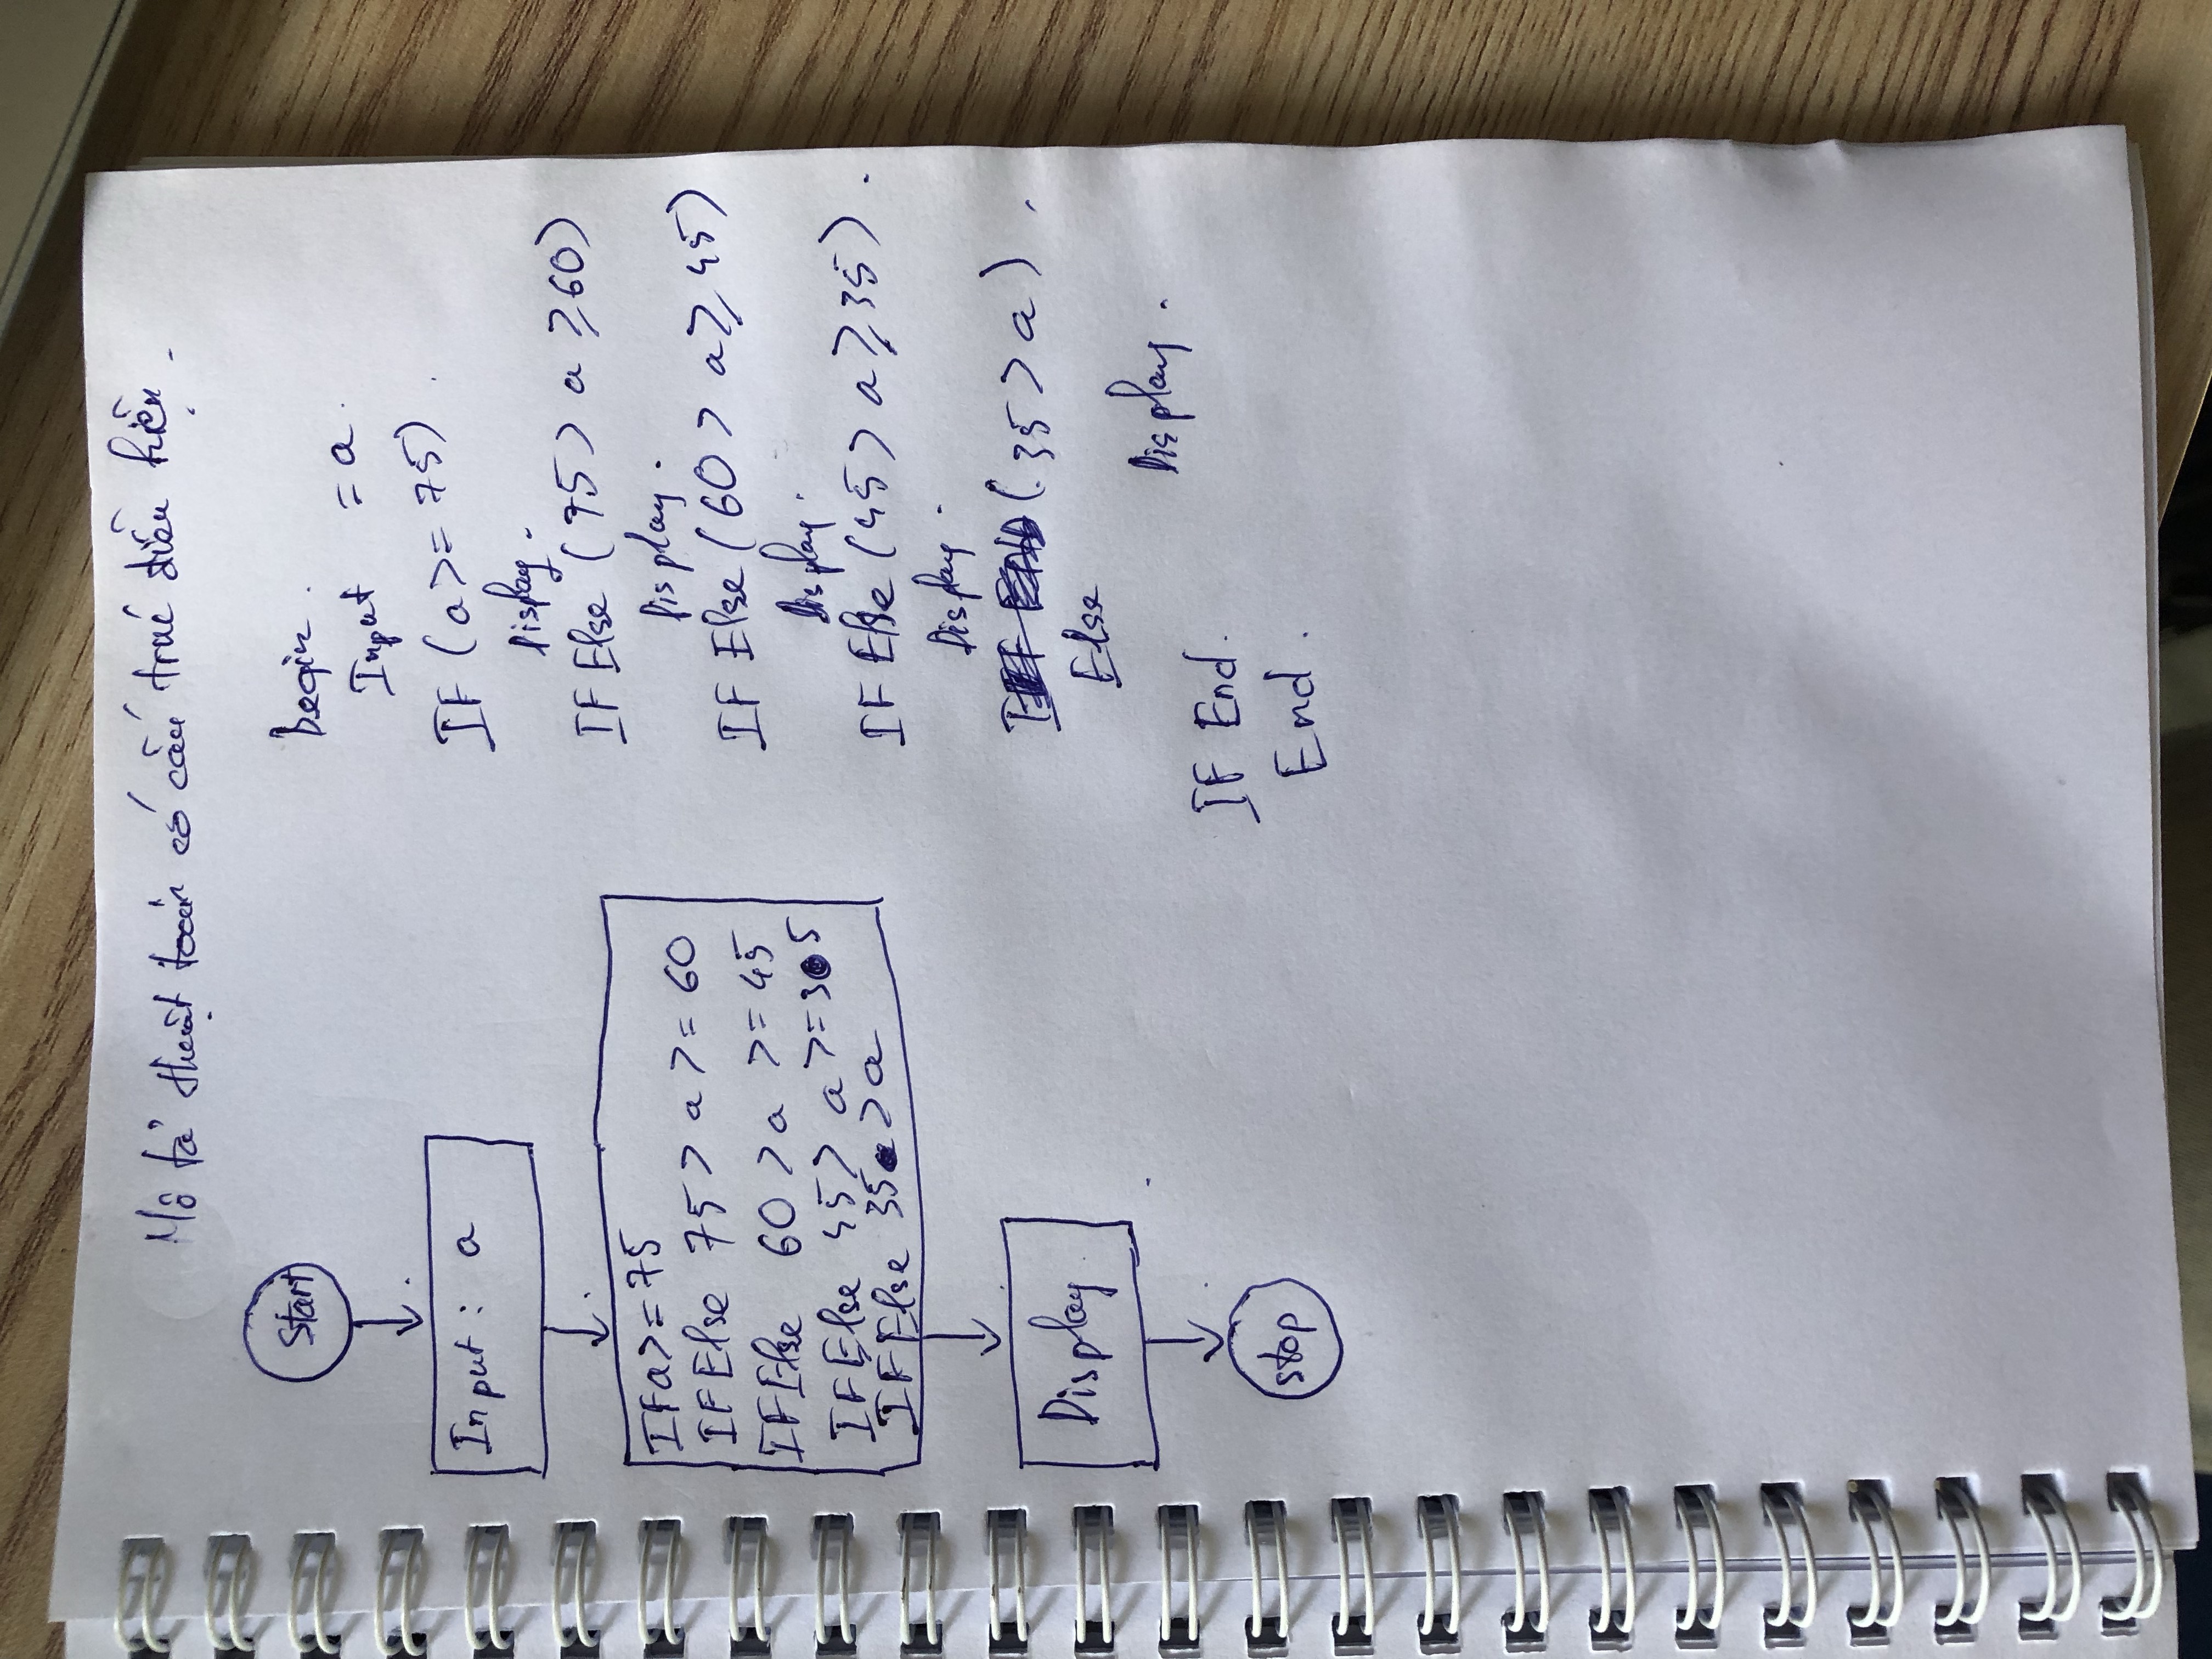 Mô tả thuật toán có cấu trúc điều kiện.
Start
Input : a
IF a >= 75
IF Else 75 > a >= 60
IF Else 60 > a >= 45
IF Else 45 > a >= 35
IF Else 35 > a
Display
stop
Begin.
Input = a.
IF (a >= 75).
Display.
IF Else (75 > a ≥ 60)
Display.
IF Else (60 > a ≥ 45)
Display.
IF Else (45 > a ≥ 35).
Display.
(35 > a).
Else
Display.
IF End.
End.